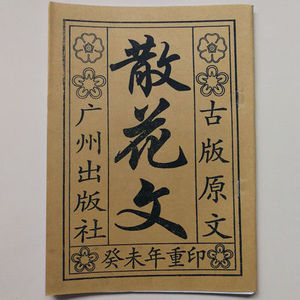 古版原文
散花文
广州出版社
癸未年重印